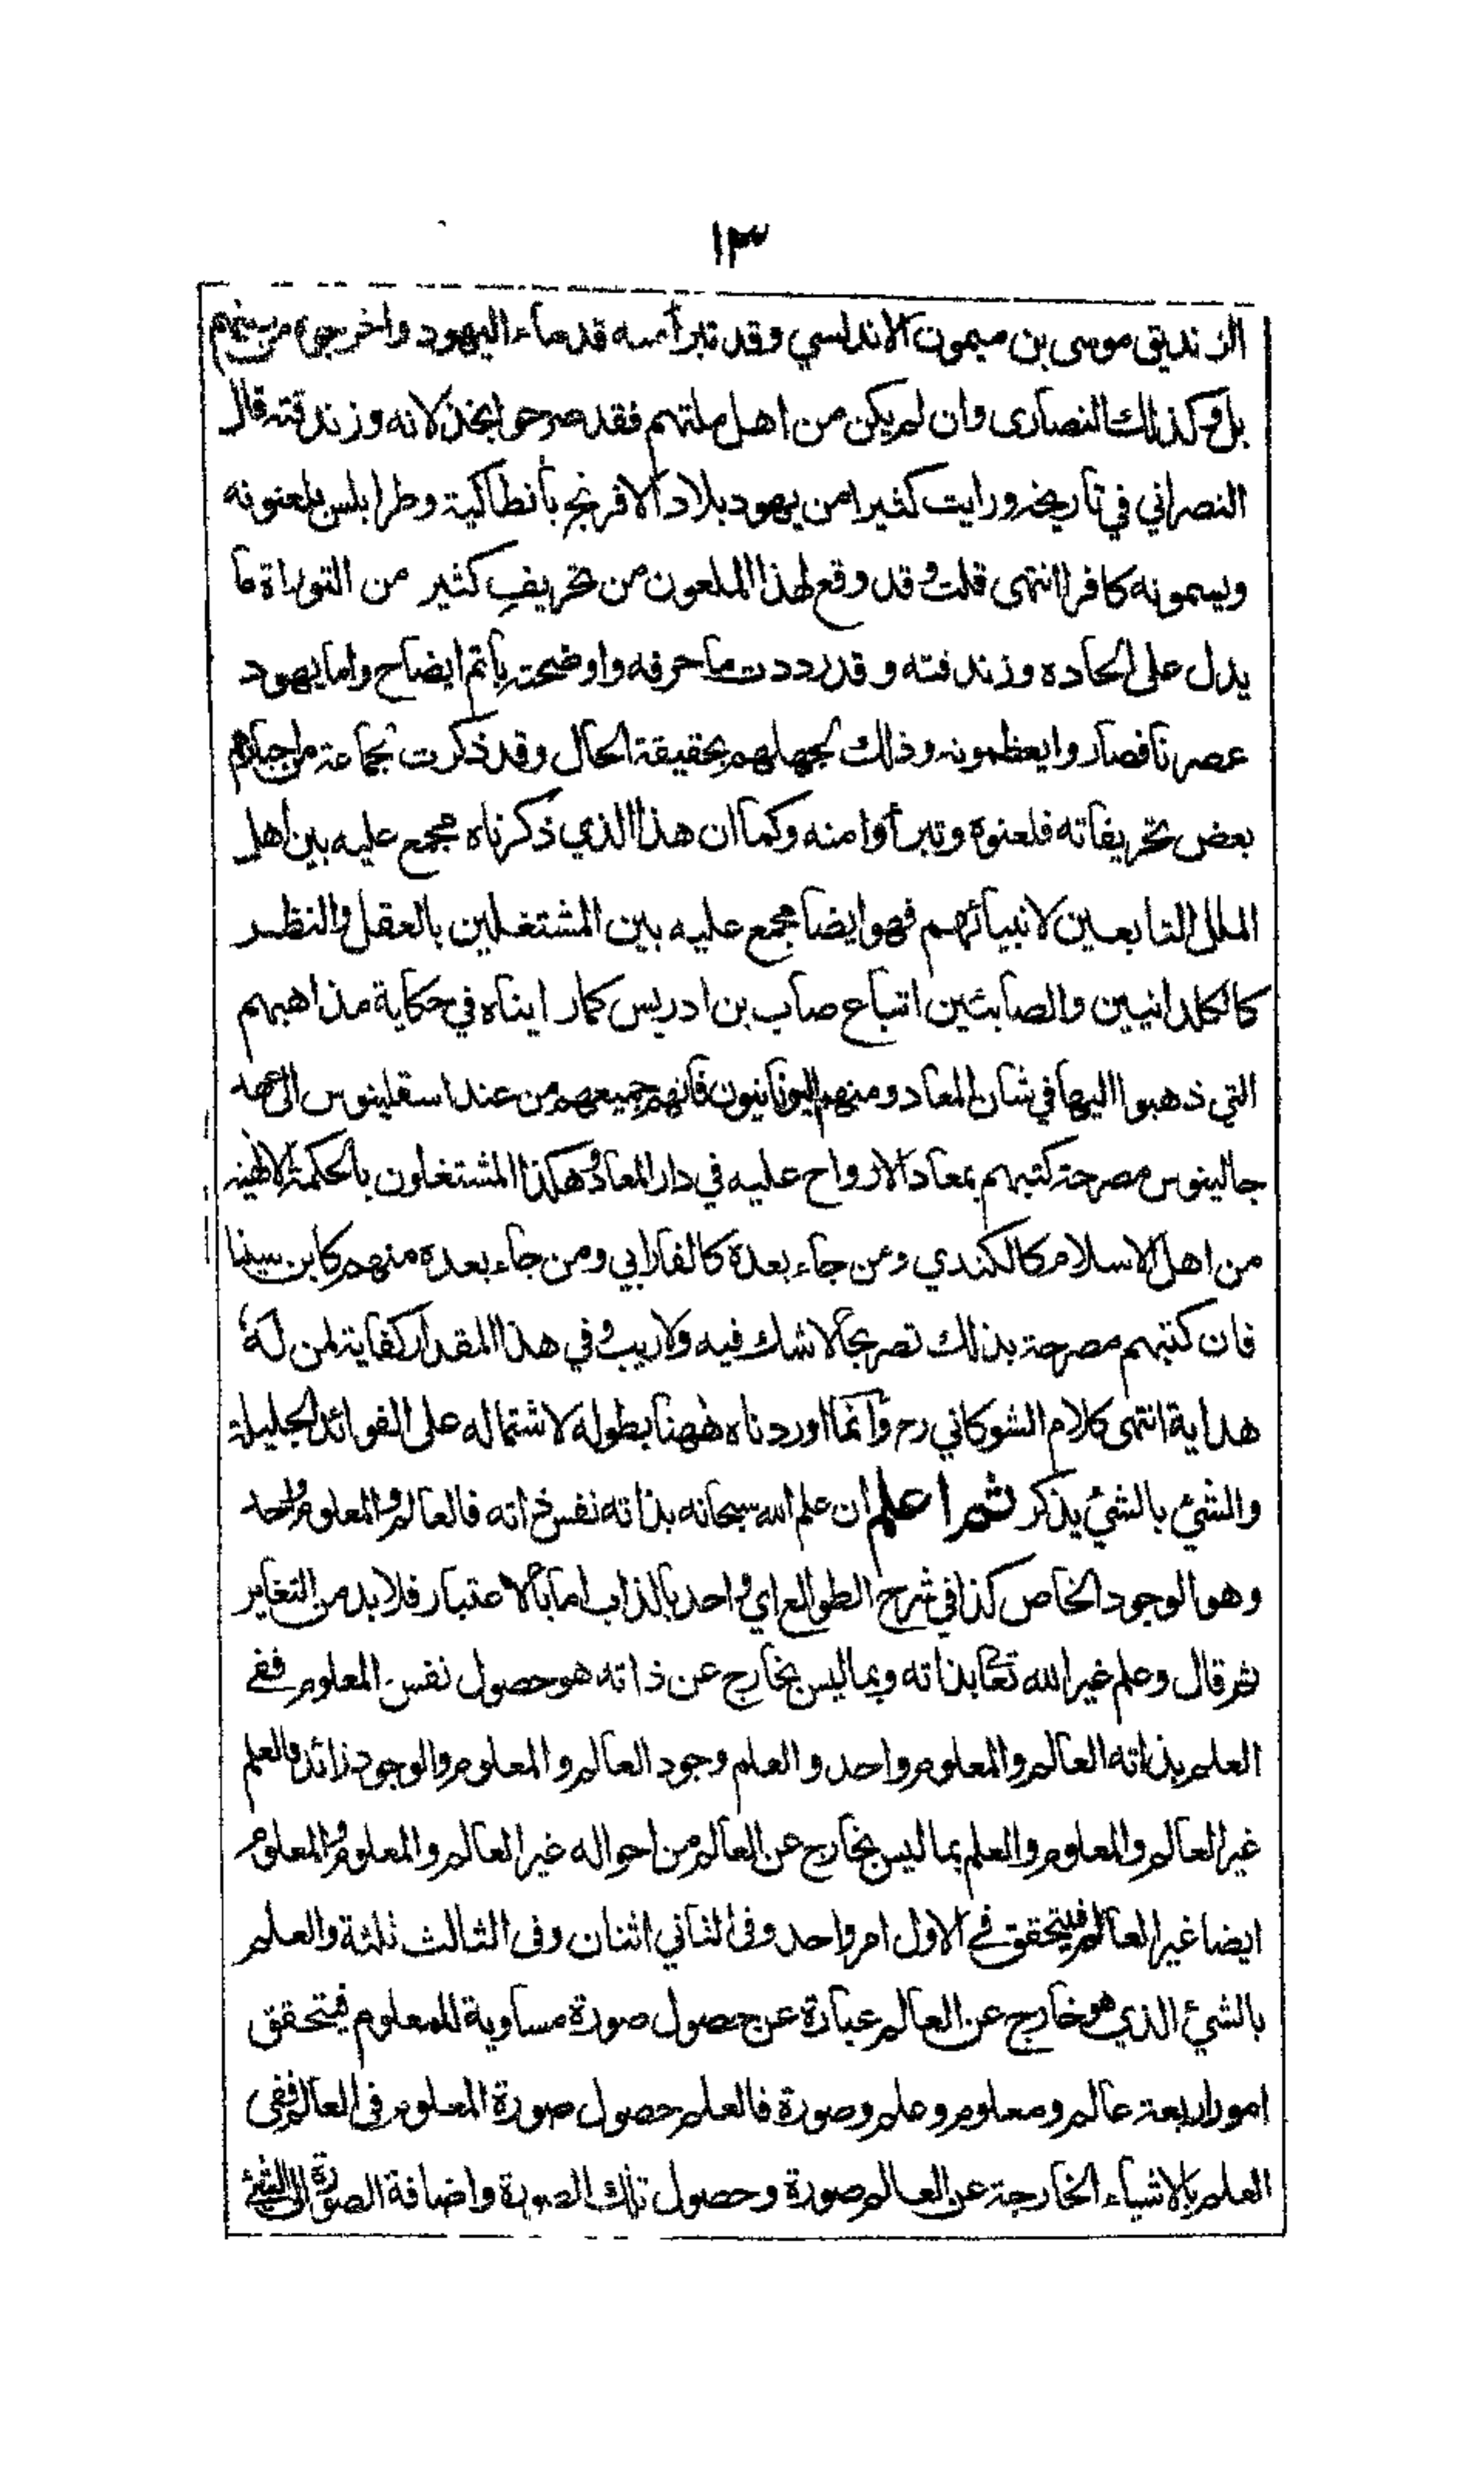 ١٣
الزنديق موسى بن ميمون الاندلسي وقد تبرأ منه قدماء اليهود واخرجوه من بينهم
بل وكذلك النصارى وان لم يكن من اهل ملتهم فقد صرحوا بخذلانه وزندقته قال
النصراني في تاريخه ورايت كثيرا من يهود بلاد الافرنج بأنطاكية وطرابلس يلعنونه
ويسمونه كافرا انتهى قلت وقد وقع لهذا الملعون من تحريف كثير من التوراة ما
يدل على الحاده وزندقته وقد رددت ما حرفه واوضحته بأتم ايضاح واما يهود
عصرنا فصاروا يعظمونه وذلك لجهلهم بحقيقة الحال وقد ذكرت لجماعة من احبارهم
بعض تحريفاته فلعنوه وتبرأوا منه وكما ان هذا الذي ذكرناه مجمع عليه بين اهل
الملل التابعين لانبيائهم فهو ايضا مجمع عليه بين المشتغلين بالعقل والنظر
كالكلدانيين والصابئين اتباع صاب بن ادريس كما راينا ه في حكاية مذاهبهم
التي ذهبوا اليها في شان المعاد ومنهم اليونانيون فانهم جميعهم من عند اسقلينوس الى عهد
جالينوس مصرحة كتبهم بمعاد الارواح عليه في دار المعاد وهكذا المشتغلون بالحكمة الالهية
من اهل الاسلام كالكندي ومن جاء بعده كالفارابي ومن جاء بعده منهم كابن سينا
فان كتبهم مصرحة بذلك تصريحا لا شك فيه ولا ريب وفي هذا المقدار كفاية لمن له
هداية انتهى كلام الشوكاني رح وانما اوردناه ههنا بطوله لاشتماله على الفوائد الجليلة
والشيء بالشيء يذكر ثم اعلم ان علم الله سبحانه بذاته نفس ذاته فالعالم والمعلوم واحد
وهو الوجود الخاص كذا في شرح الطوالع اي واحد بالذات اما بالاعتبار فلا بد من التغاير
ثم قال وعلم غير الله تعا بذاته وبما ليس بخارج عن ذاته هو حصول نفس المعلوم ففي
العلم بذاته العالم والمعلوم واحد والعلم وجود العالم والمعلوم والوجود زائد فالعلم
غير العالم والمعلوم والعلم بما ليس بخارج عن العالم من احواله غير العالم والمعلوم والمعلوم
ايضا غير العالم فيتحقق في الاول امر واحد وفى الثاني اثنان وفى الثالث ثلثة والعلم
بالشيئ الذي هو خارج عن العالم عبارة عن حصول صورة مساوية للمعلوم فيتحقق
امور اربعة عالم ومعلوم وعلم وصورة فالعلم حصول صورة المعلوم فى العالم ففى
العلم بالاشياء الخارجة عن العالم صورة وحصول تلك الصورة واضافة الصورة الى الشيئ